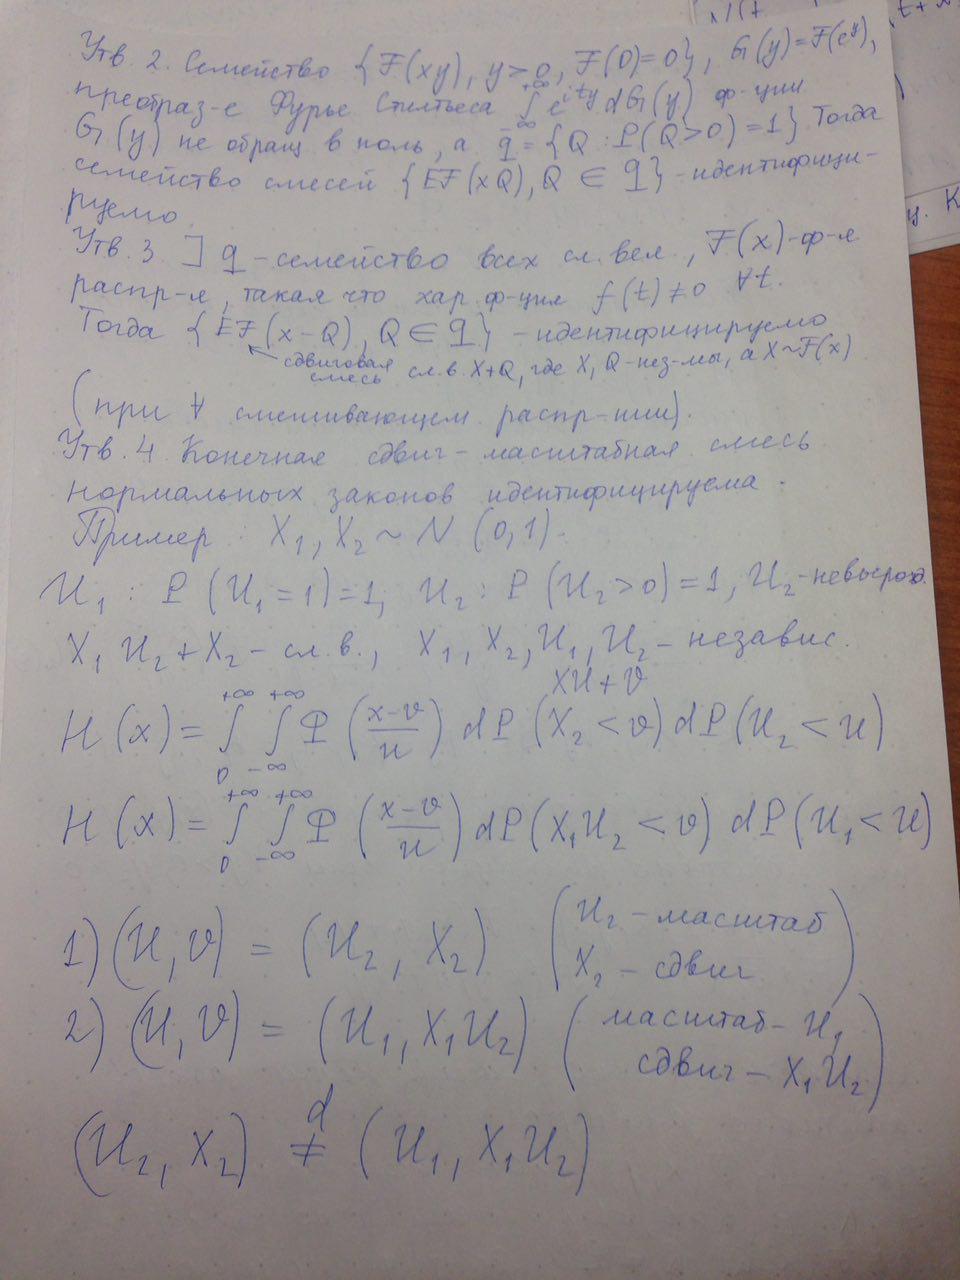 Утв. 2. Семейство {F(xy), y>0, F(0)=0}, G(y)=F(e^y),
преобраз-е Фурье Стилтьеса ∫_{-∞}^{+∞} e^{ity} dG(y) ф-ции
G(y) не обращ в ноль, а q = {Q : P(Q>0)=1} Тогда
семейство смесей {EF(xQ), Q ∈ q} - идентифици-
руемо.
Утв. 3 ] q - семейство всех сл. вел., F(x)-ф-я
распр-я, такая что хар. ф-ция f(t)≠0 ∀t.
Тогда {EF(x-Q), Q∈q} - идентифицируемо
сдвиговая смесь сл. в. X+Q, где X, Q-нез-мы, а X~F(x)
(при ∀ смешивающем распр-нии).
Утв. 4 Конечная сдвиг-масштабная смесь
нормальных законов идентифицируема.
Пример: X₁, X₂ ~ N (0,1).
U₁ : P (U₁=1)=1, U₂ : P (U₂>0)=1, U₂-невырожд.
X₁U₂+X₂ - сл. в., X₁, X₂, U₁, U₂ - независ.
XU+V
H(x) = ∫_0^{+∞} ∫_{-∞}^{+∞} Φ((x-v)/u) dP(X₂<v) dP(U₂<u)
H(x) = ∫_0^{+∞} ∫_{-∞}^{+∞} Φ((x-v)/u) dP(X₁U₂<v) dP(U₁<u)
1) (U, V) = (U₂, X₂) (U₂ - масштаб
X₂ - сдвиг)
2) (U, V) = (U₁, X₁U₂) (масштаб - U₁
сдвиг - X₁U₂)
(U₂, X₂) ≠^d (U₁, X₁U₂)